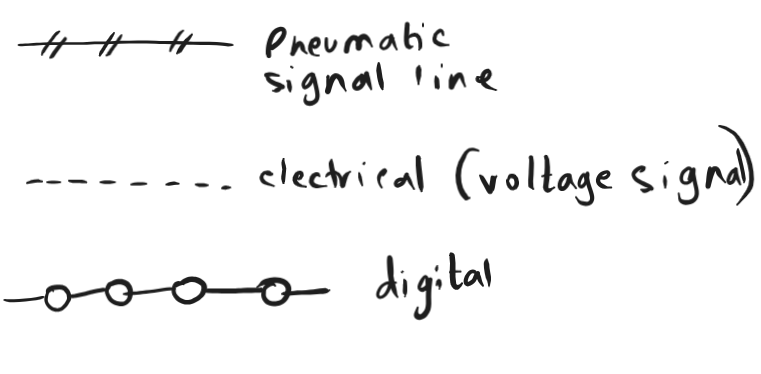 Pneumatic
signal line
electrical (voltage signal)
digital